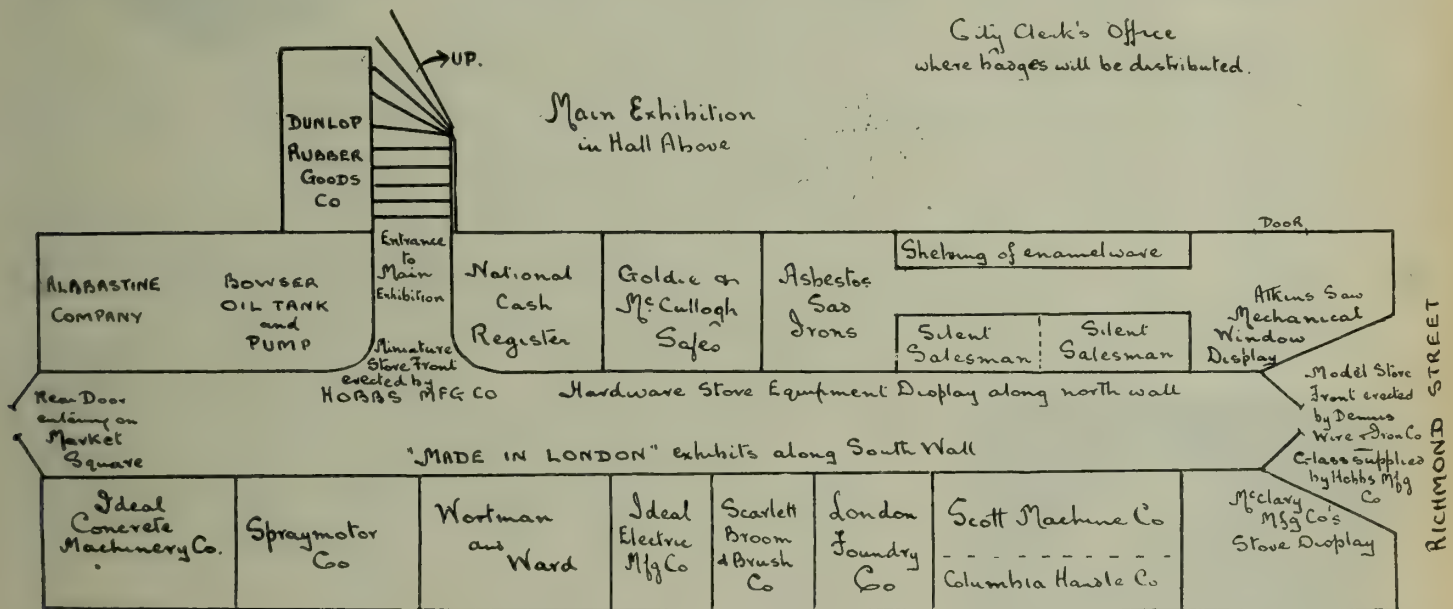 City Clerk's Office
where badges will be distributed.
UP.
Main Exhibition
in Hall Above
DUNLOP
RUBBER
GOODS
CO
ALABASTINE
COMPANY
BOWSER
OIL TANK
and
PUMP
Entrance
to
Main
Exhibition
Miniature
Store Front
erected by
HOBBS MFG CO
National
Cash
Register
Goldie &
McCullogh
Safes
Asbestos
Sad
Irons
Shelving of enamelware
Silent
Salesman
Silent
Salesman
DOOR
Atkins Saw
Mechanical
Window
Display
RICHMOND STREET
Hardware Store Equipment Display along north wall
Rear Door
entering on
Market
Square
"MADE IN LONDON" exhibits along South Wall
Model Store
Front erected
by Dennis
Wire & Iron Co
Glass supplied
by Hobbs Mfg
Co
Ideal
Concrete
Machinery Co.
Spraymotor
Co
Wortman
and
Ward
Ideal
Electric
Mfg Co
Scarlett
Broom
& Brush
Co
London
Foundry
Co
Scott Machine Co
Columbia Handle Co
McClary
Mfg Co's
Stove Display